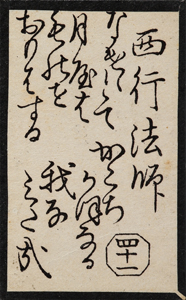 西行法師
なけけとて
月やは
ものを
おもはする
かこち
かほなる
我な
みた哉
四十二